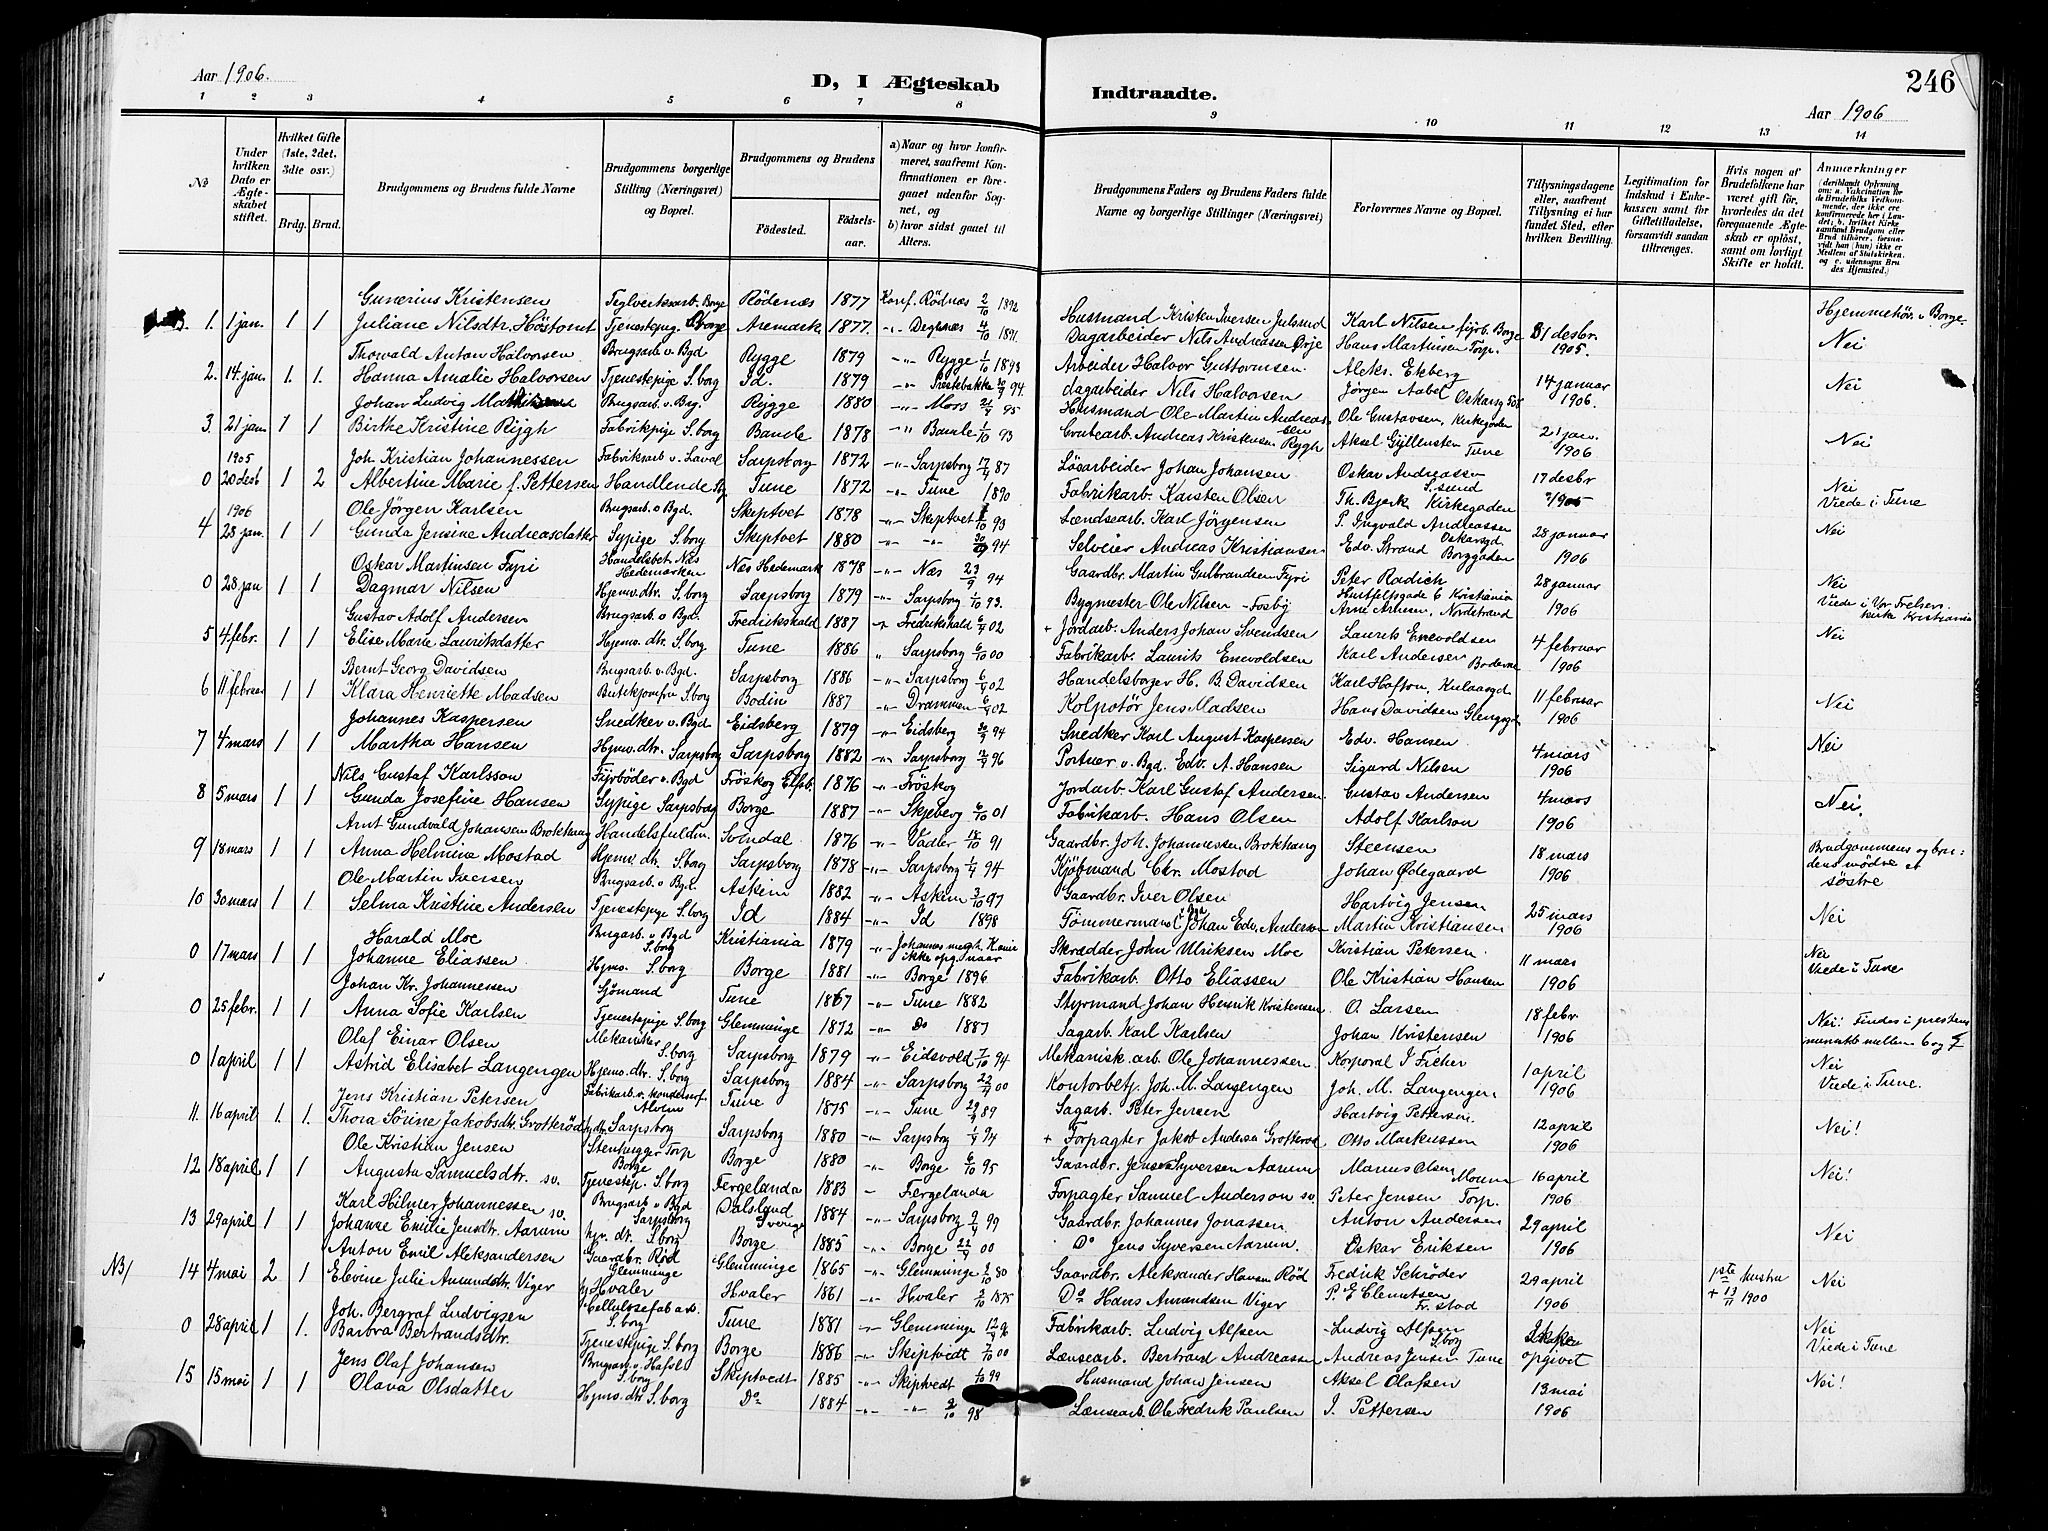 Aar 1906.
D, I Ægteskab
Indtraadte.
246
Aar 1906
1 2 3 4 5 6 7 8
9 10 11 12 13 14
No
Under hvilken Dato er Ægteskabet stiftet.
Hvilket Gifte (1ste, 2det, 3die osv.)
Brdg. Brud.
Brudgommens og Brudens fulde Navne
Brudgommens borgerlige Stilling (Næringsvei) og Bopæl.
Brudgommens og Brudens
Födested. Födselsaar.
a) Naar og hvor konfirmeret, saafremt Konfirmationen er foregaaet udenfor Sognet, og
b) hvor sidst gaaet til Alters.
Brudgommens Faders og Brudens Faders fulde Navne og borgerlige Stillinger (Næringsvei)
Forlovernes Navne og Bopæl.
Tillysningsdagene eller, saafremt Tillysning ei har fundet Sted, efter hvilken Bevilling.
Legitimation for Indskud i Enkekassen samt for Giftetilladelse, forsaavidt saadan tiltrænges.
Hvis nogen af Brudefolkene har været gift för, hvorledes da det foregaaende Ægteskab er oplöst, samt om lovligt Skifte er holdt.
Anmærkninger
Gunerius Kristensen Teglverksarb. Borge Rödenæs 1877 Konf. Rödnæs 2/10 1892 Husmand Kristen Iversen Julsrud Karl Nilsen fyrb. Borge Hjemmehör. v. Borge.
1. 1 jan. 1 1 Juliane Nilsdtr. Höstomt Tjenestepig. S.borg Aremark 1877. Degernæs 4/10 1891. Dagarbeider Nils Andreassen Örje Hans Martinsen Torp. 31 desbr. 1905. Nei
Thorvald Anton Halvorsen Brugsarb. v. Bgd Rygge 1879 Rygge 1/10 1893 Arbeider Halvor Guttormsen. Aleks. Ekberg
2. 14 jan. 1. 1. Hanna Amalie Halvorsen Tjenestepige S.borg Id. 1879 Prestebakke 30/9 94. dagarbeider Nils Halvorsen Jörgen Aabel Oskarsg 508 14 januar 1906. Nei
Johan Ludvig Brugsarb. v. Brg. Rygge 1880 Moss 21/4 95 Husmand Ole Martin Andreassen Ole Gustavsen, Kirkegaden
3. 21 jan. 1 1 Birthe Kristine Rygh Fabrikpige S.borg Bamle 1878 Bamle 1/10 93 Grubearb. Andreas Kristensen Rygh Aksel Gyllensten Tune 21 jan. 1906 Nei
1905 Joh. Kristian Johannessen Fabriksarb. v. Laval Sarpsborg 1872 Sarpsborg 17/4 87 Lösarbeider Johan Johansen Oskar Andreassen S.sund
0 20 desb 1 2 Albertine Marie f. Pettersen Handlende Tune 1872 Tune 1890 Fabrikarb. Karsten Olsen Th. Bjerk Kirkegaden 17 desbr 1905 Nei Viede i Tune
1906 Ole Jörgen Karlsen Brugsarb. v Bgd. Skiptvet 1878 Skiptvet 1/10 93 Lændsearb. Karl Jörgensen P. Ingvald Andreassen Oskarsgd
4 28 jan. 1 1 Gunda Jensine Andreasdatter Sypige S.borg Skiptvet 1880 94 Selveier Andreas Kristiansen Edv. Strand Borggaden 28 januar 1906 Nei
Oskar Martinsen Fyri Handelsbet. Næs Hedemarken Næs Hedemark 1878 Næs 23/9 94 Gaardbr. Martin Gulbrandsen Fyri Peter Radich Huitfeltsgade 6 Kristiania
0 28 jan 1 1 Dagmar Nilsen Hjemv. dtr. S.borg Sarpsborg 1879 Sarpsborg 1/10 93. Bygmester Ole Nilsen Fosby Arne Arnesen, Nordstrand 28 januar 1906 Nei Viede i Vor Frelsers kirke Kristiania
Gustav Adolf Andersen Brugsarb. v Bgd. Fredrikshald 1887 Fredrikshald 6/4 02 + Jordarb. Anders Johan Svendsen Laurits Enevoldsen
5 4 febr. 1 1 Elise Marie Lauritsdatter Hjemv. dtr. S.borg Tune 1886 Sarpsborg 6/10 00 Fabrikarb. Laurits Enevoldsen Karl Andersen Boderne 4 februar 1906 Nei
Bernt Georg Davidsen Brugsarb. v. Bgd. Sarpsborg 1886 Sarpsborg 6/4 02 Handelsborger H. B. Davidsen Karl Hafton, Kulaasgd
6 11 februar 1 1 Klara Henriette Madsen Butikjomfru S.borg Bodin 1887 Drammen 6/4 02 Kolportör Jens Madsen Hans Davidsen Glenggd 11 februar 1906 Nei
Johannes Kaspersen Snedker v. Bgd Eidsberg 1879 Eidsberg 30/9 94 Snedker Karl August Kaspersen Edv. Hansen
7 4 mars 1 1 Martha Hansen Hjemv. dtr. Sarpsborg Sarpsborg 1882 Sarpsborg 12/4 96 Portner v. Bgd. Edv. A. Hansen Sigurd Nilsen 4 mars 1906 Nei
Nils Gustaf Karlsson Fyrböder v. Bgd Fröskog Elfsb. 1876 Fröskog Jordarb. Karl Gustaf Andersen. Gustav Andersen
8 5 mars 1 1 Gunda Josefine Hansen Sypige Sarpsborg Borge 1887 Skjeberg 6/10 01 Fabrikarb. Hans Olsen Adolf Karlson 4 mars 1906 Nei.
Arnt Gundvald Johansen Brokhaug Handelsfuldm. Svindal 1876 Vaaler 18/10 91 Gaardbr. Joh. Johannessen Brokhaug Steensen
9 18 mars 1 1 Anna Helmina Mostad Hjemv. dtr. S.borg Sarpsborg 1878 Sarpsborg 1/4 94 Kjöbmand Chr. Mostad Johan Ödegaard 18 mars 1906 Brudgommens og brudens mödre et söstre
Ole Martin Iversen Brugsarb. v Bgd. Askim 1882 Askim 3/10 97 Gaardbr. Iver Olsen Hartvig Jensen
10 30 mars 1 1 Selma Kristine Andersen Tjenestepige S.borg Id 1884 Id 1898 Tömmermand v. Bgd Johan Edv. Andersen Martin Kristiansen 25 mars 1906 Nei
Harald Moe Brugarb. v Bgd S.borg Kristiania 1879 Johannes megh. Kania ikke opg. naar Skrædder John Ulriksen Moe Kristian Petersen
0 17 mars 1 1 Johanne Eliassen Hjemv. S.borg Borge 1881 Borge 1896 Fabrikarb. Otto Eliassen Ole Kristian Hansen 11 mars 1906 Nei Viede i Tune
Johan Kr. Johannessen Sjömand Tune 1867 Tune 1882 Styrmand Johan Henrik Kristensen O. Larsen
0 25 febr. 1 1 Anna Sofie Karlsen Tjenestepige S.borg Glemminge 1872 Do 1887 Sagarb. Karl Karlsen Johan Kristensen 18 febr. 1906 Nei! Findes i prestens ministb. mellem 6 og 7
Olaf Einar Olsen Mekaniker S.borg Sarpsborg 1879 Eidsvold 7/10 94 Mekanisk. arb. Ole Johannessen Korporal J Ficher
0 1 april 1 1 Astrid Elisabet Langengen Hjemv. dtr. S.borg Sarpsborg 1884 Sarpsborg 22/4 00 Kontorbetj. Joh. M. Langengen Joh. M. Langengen 1 april 1906 Nei Viede i Tune.
Jens Kristian Petersen Fabrikarb. v. kondensf. Alvim Tune 1875 Tune 29/9 89 Sagarb. Peter Jensen Hartvig Pettersen
11. 16 april 1. 1. Thora Sörine Jakobsdtr. Grotteröd Sarpsborg Sarpsborg 1880 Sarpsborg 1/4 94 + Forpagter Jakob Andersen Grotteröd, Otto Markussen 12 april 1906 Nei!
Ole Kristian Jensen Stenhugger Torp Borge Borge 1880 Borge 6/10 95 Gaardbr. Jens Syversen Aarum Marius Olsen Moum
12 18 april 1 1 Augusta Samuelsdtr. sv. Tjenestep. S.borg Fergelanda Dalsland Sverige 1883 Fergelanda Forpagter Samuel Anderson sv. Peter Jensen Torp. 16 april 1906 Nei!
Karl Hilmer Johannessen sv. Brugsarb. v Bgd Sarpsborg 1884 Sarpsborg 9/4 99 Gaardbr. Johannes Jonassen Anton Andersen
13 29 april 1 1 Johanne Emilie Jensdtr. Aarum hjv. dtr. S.borg Borge 1885 Borge 22/4 00 Do Jens Syversen Aarum. Oskar Eriksen 29 april 1906 Nei
Anton Emil Aleksandersen Gaardbr. Röd Glemminge Glemminge 1865 Glemminge 3/10 80 Gaardbr. Aleksander Hansen Röd Fredrik Schröder
NB/ 14 4 mai 2 1 Elevine Julie Amundsdtr. Viger Hvaler Hvaler 1861 Hvaler 2/10 1875 Do Hans Amundsen Viger P. E Clemetsen Fr.stad 29 april 1906 1ste hustru + 13/11 1900 Nei
Joh. Bergraf Ludvigsen Cellulosefab arb. S.borg Tune 1881 Glemminge 12/4 96 Fabrikarb. Ludvig Alfsen Ludvig Alfsen S.borg
0 28 april 1 1. Barbra Bertrandsdtr. Tjenestepige S.borg Borge 1886 Skiptvedt 7/10 00 Lænsearb. Bertrand Andreassen Andreas Jensen Tune Ikke opgivet Nei Viede i Tune
Jens Olaf Johansen Brugsarb. v. Hafsl. S.borg Skiptvedt 1885 Skiptvedt 1/10 99 Husmand Johan Jensen Aksel Olafsen
15 15 mai 1 1 Olava Olsdatter Hjemv. dtr. S.borg Do 1884 2/10 98 Lænsearb. Ole Fredrik Paulsen J. Pettersen 13 mai 1906 Nei!